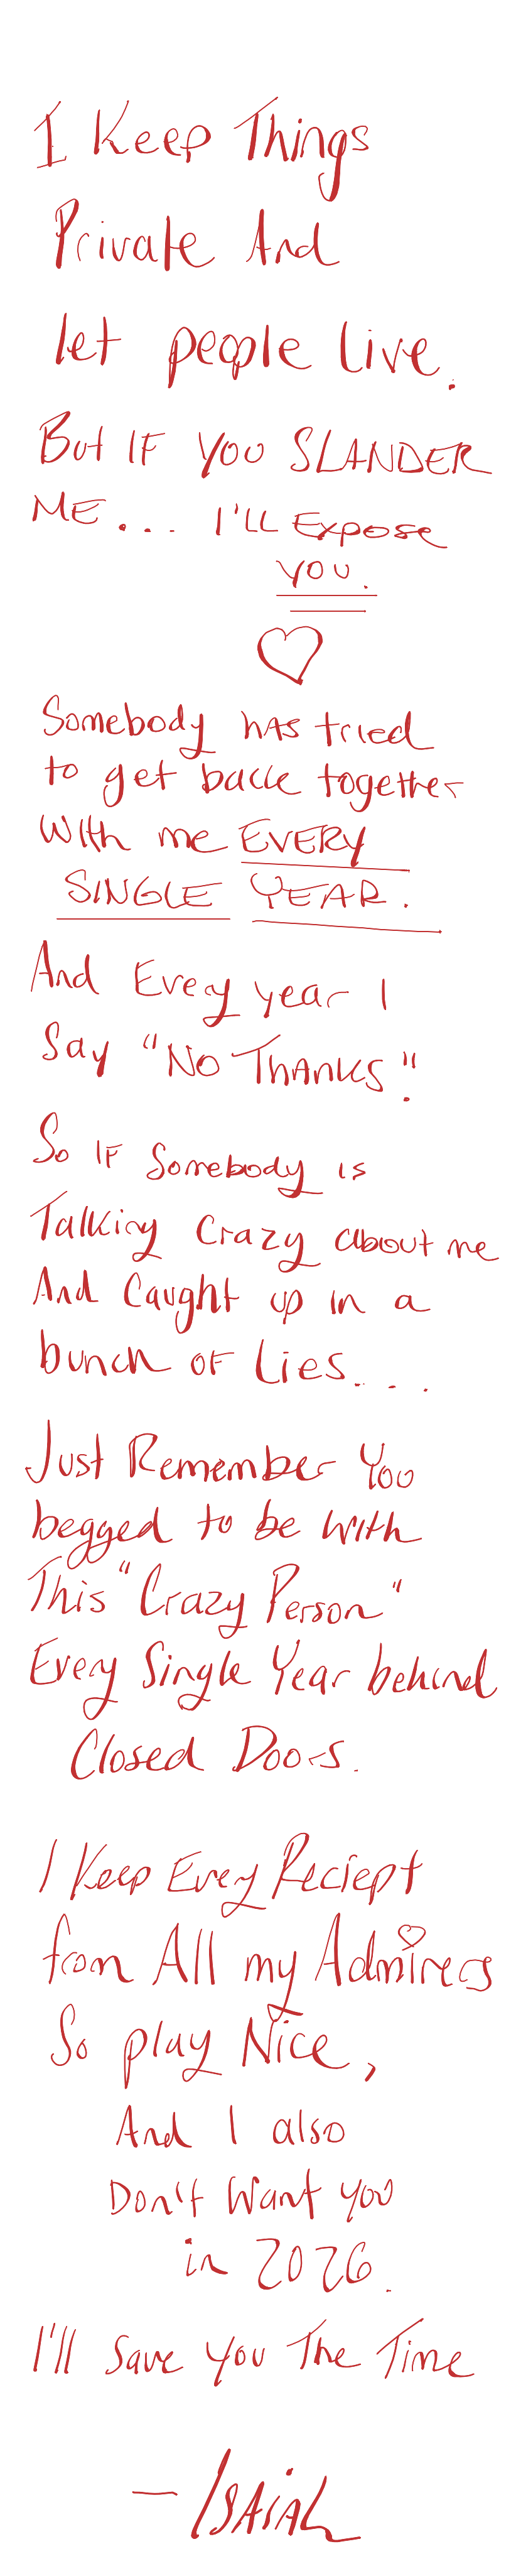 I Keep Things
Private And
let people live.
But IF YOU SLANDER
ME... I'LL Expose
YOU.
Somebody hAs tried
to get back together
With me EVERY
SINGLE YEAR.
And Every year I
Say "NO THANKS"!
So IF Somebody is
Talking Crazy about me
And Caught up in a
bunch of Lies...
Just Remember You
begged to be With
This "Crazy Person"
Every Single Year behind
Closed Doors.
I Keep Every Reciept
from All my Admirers
So play Nice,
And I also
Don't Want you
in 2026.
I'll Save you The Time
- ISAIAh